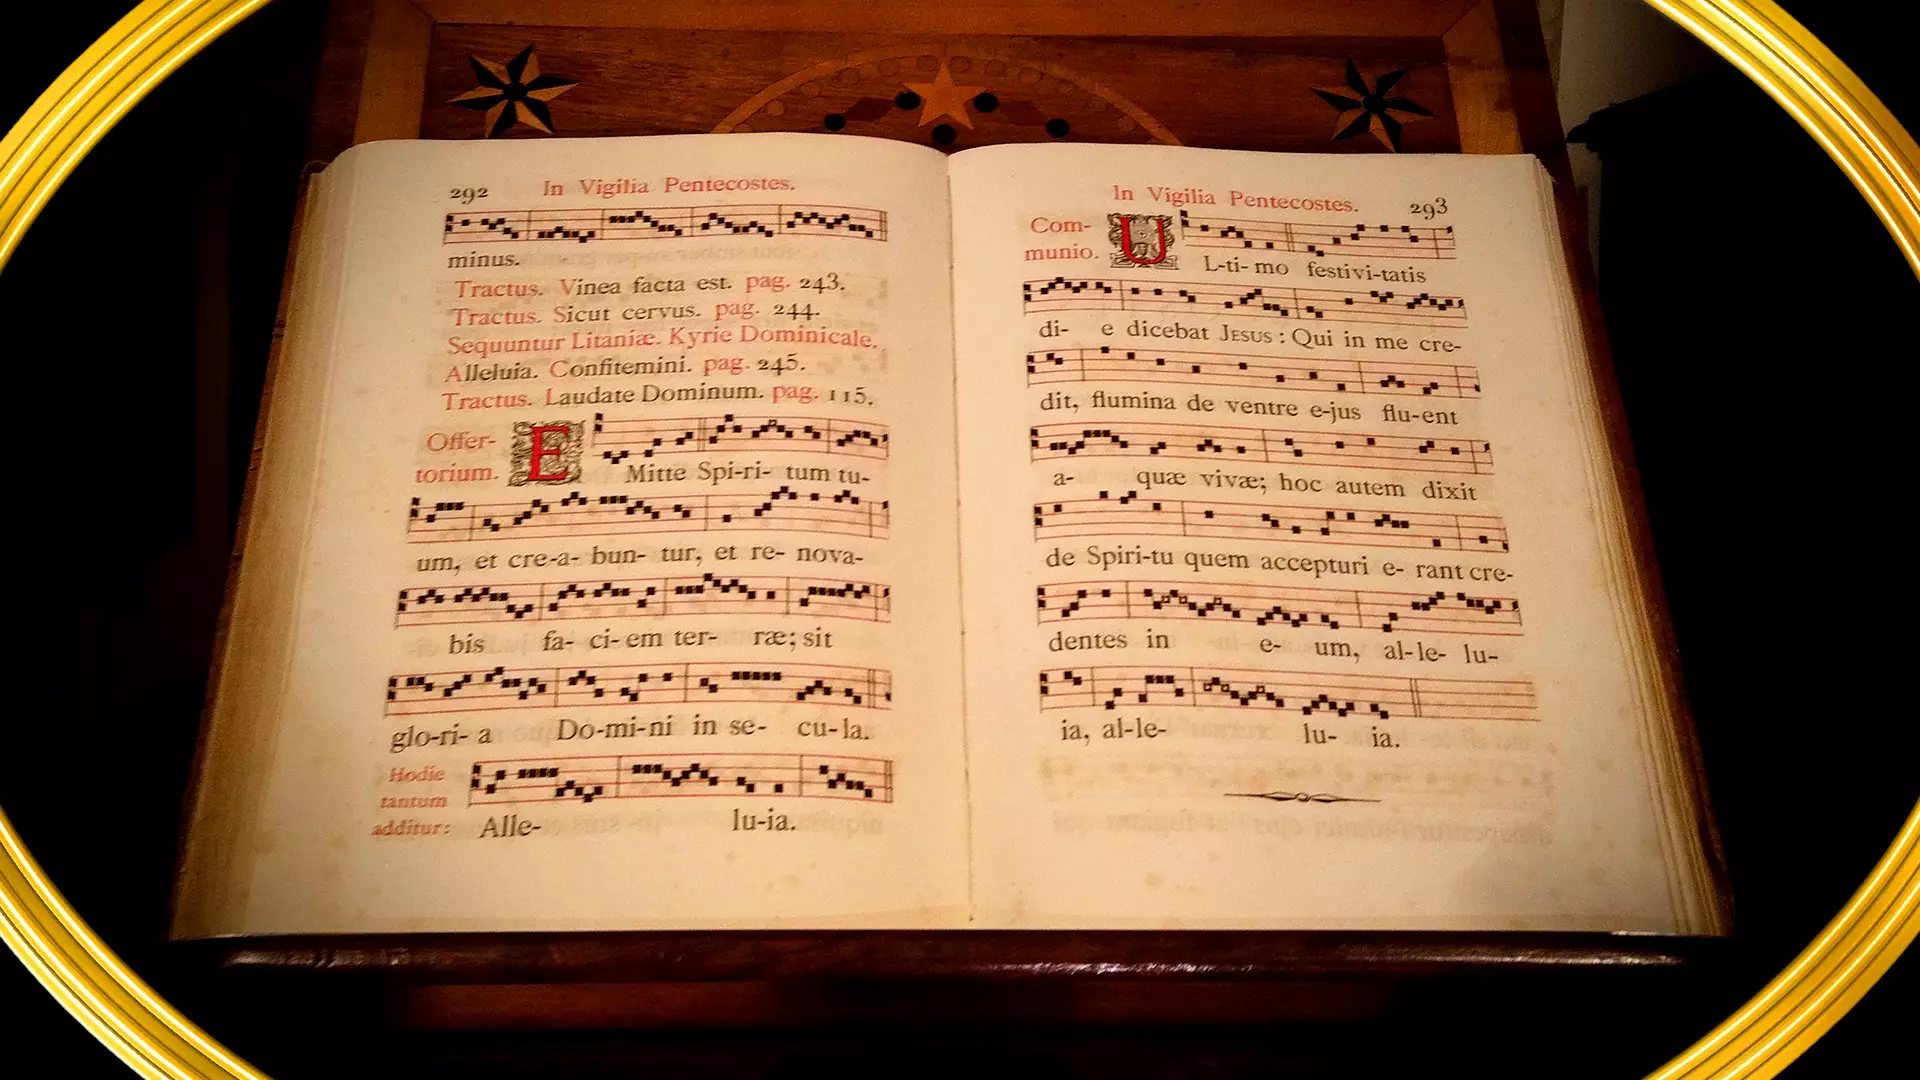 292 In Vigilia Pentecostes.
minus.
Tractus. Vinea facta est. pag. 243.
Tractus. Sicut cervus. pag. 244.
Sequuntur Litaniæ. Kyrie Dominicale.
Alleluia. Confitemini. pag. 245.
Tractus. Laudate Dominum. pag. 115.
Offer-
torium.
E Mitte Spi-ri- tum tu-
um, et cre-a- bun- tur, et re- nova-
bis fa- ci-em ter- ræ; sit
glo-ri- a Do-mi-ni in se- cu-la.
Hodie
tantum
additur: Alle- lu-ia.
In Vigilia Pentecostes. 293
Com-
munio.
U L-ti-mo festivi-tatis
di- e dicebat Jesus : Qui in me cre-
dit, flumina de ventre e-jus flu-ent
a- quæ vivæ; hoc autem dixit
de Spiri-tu quem accepturi e- rant cre-
dentes in e- um, al-le- lu-
ia, al-le- lu- ia.